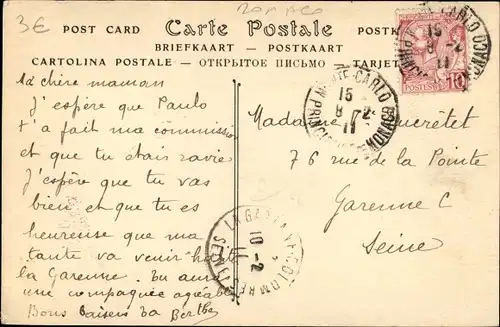 3€ 
POST CARD Carte Postale POSTK
BRIEFKAART - POSTKAART
CARTOLINA POSTALE - ОТКРЫТОЕ ПИСЬМО - TARJET
MONTE-CARLO
15
8 -2
11
PRINCIPTÉ DE MONACO
POSTES
10
MONTE-CARLO
15
8 -2
11
PRINCIPTÉ DE MONACO
Ma chire maman
J'espère que Paulo
t'a fait ma commission
et que tu étais ravie
J'espère que tu vas
bien et que tu es
heureuse que ma
tante va venir
la Garenne. Tu auras
une compagnée agréable
Bons baisers ta Berthe
Madame
76 rue de la Pointe
Garenne C
Seine
LA GARENNE-COLOMBES
10 -2
11
SEINE